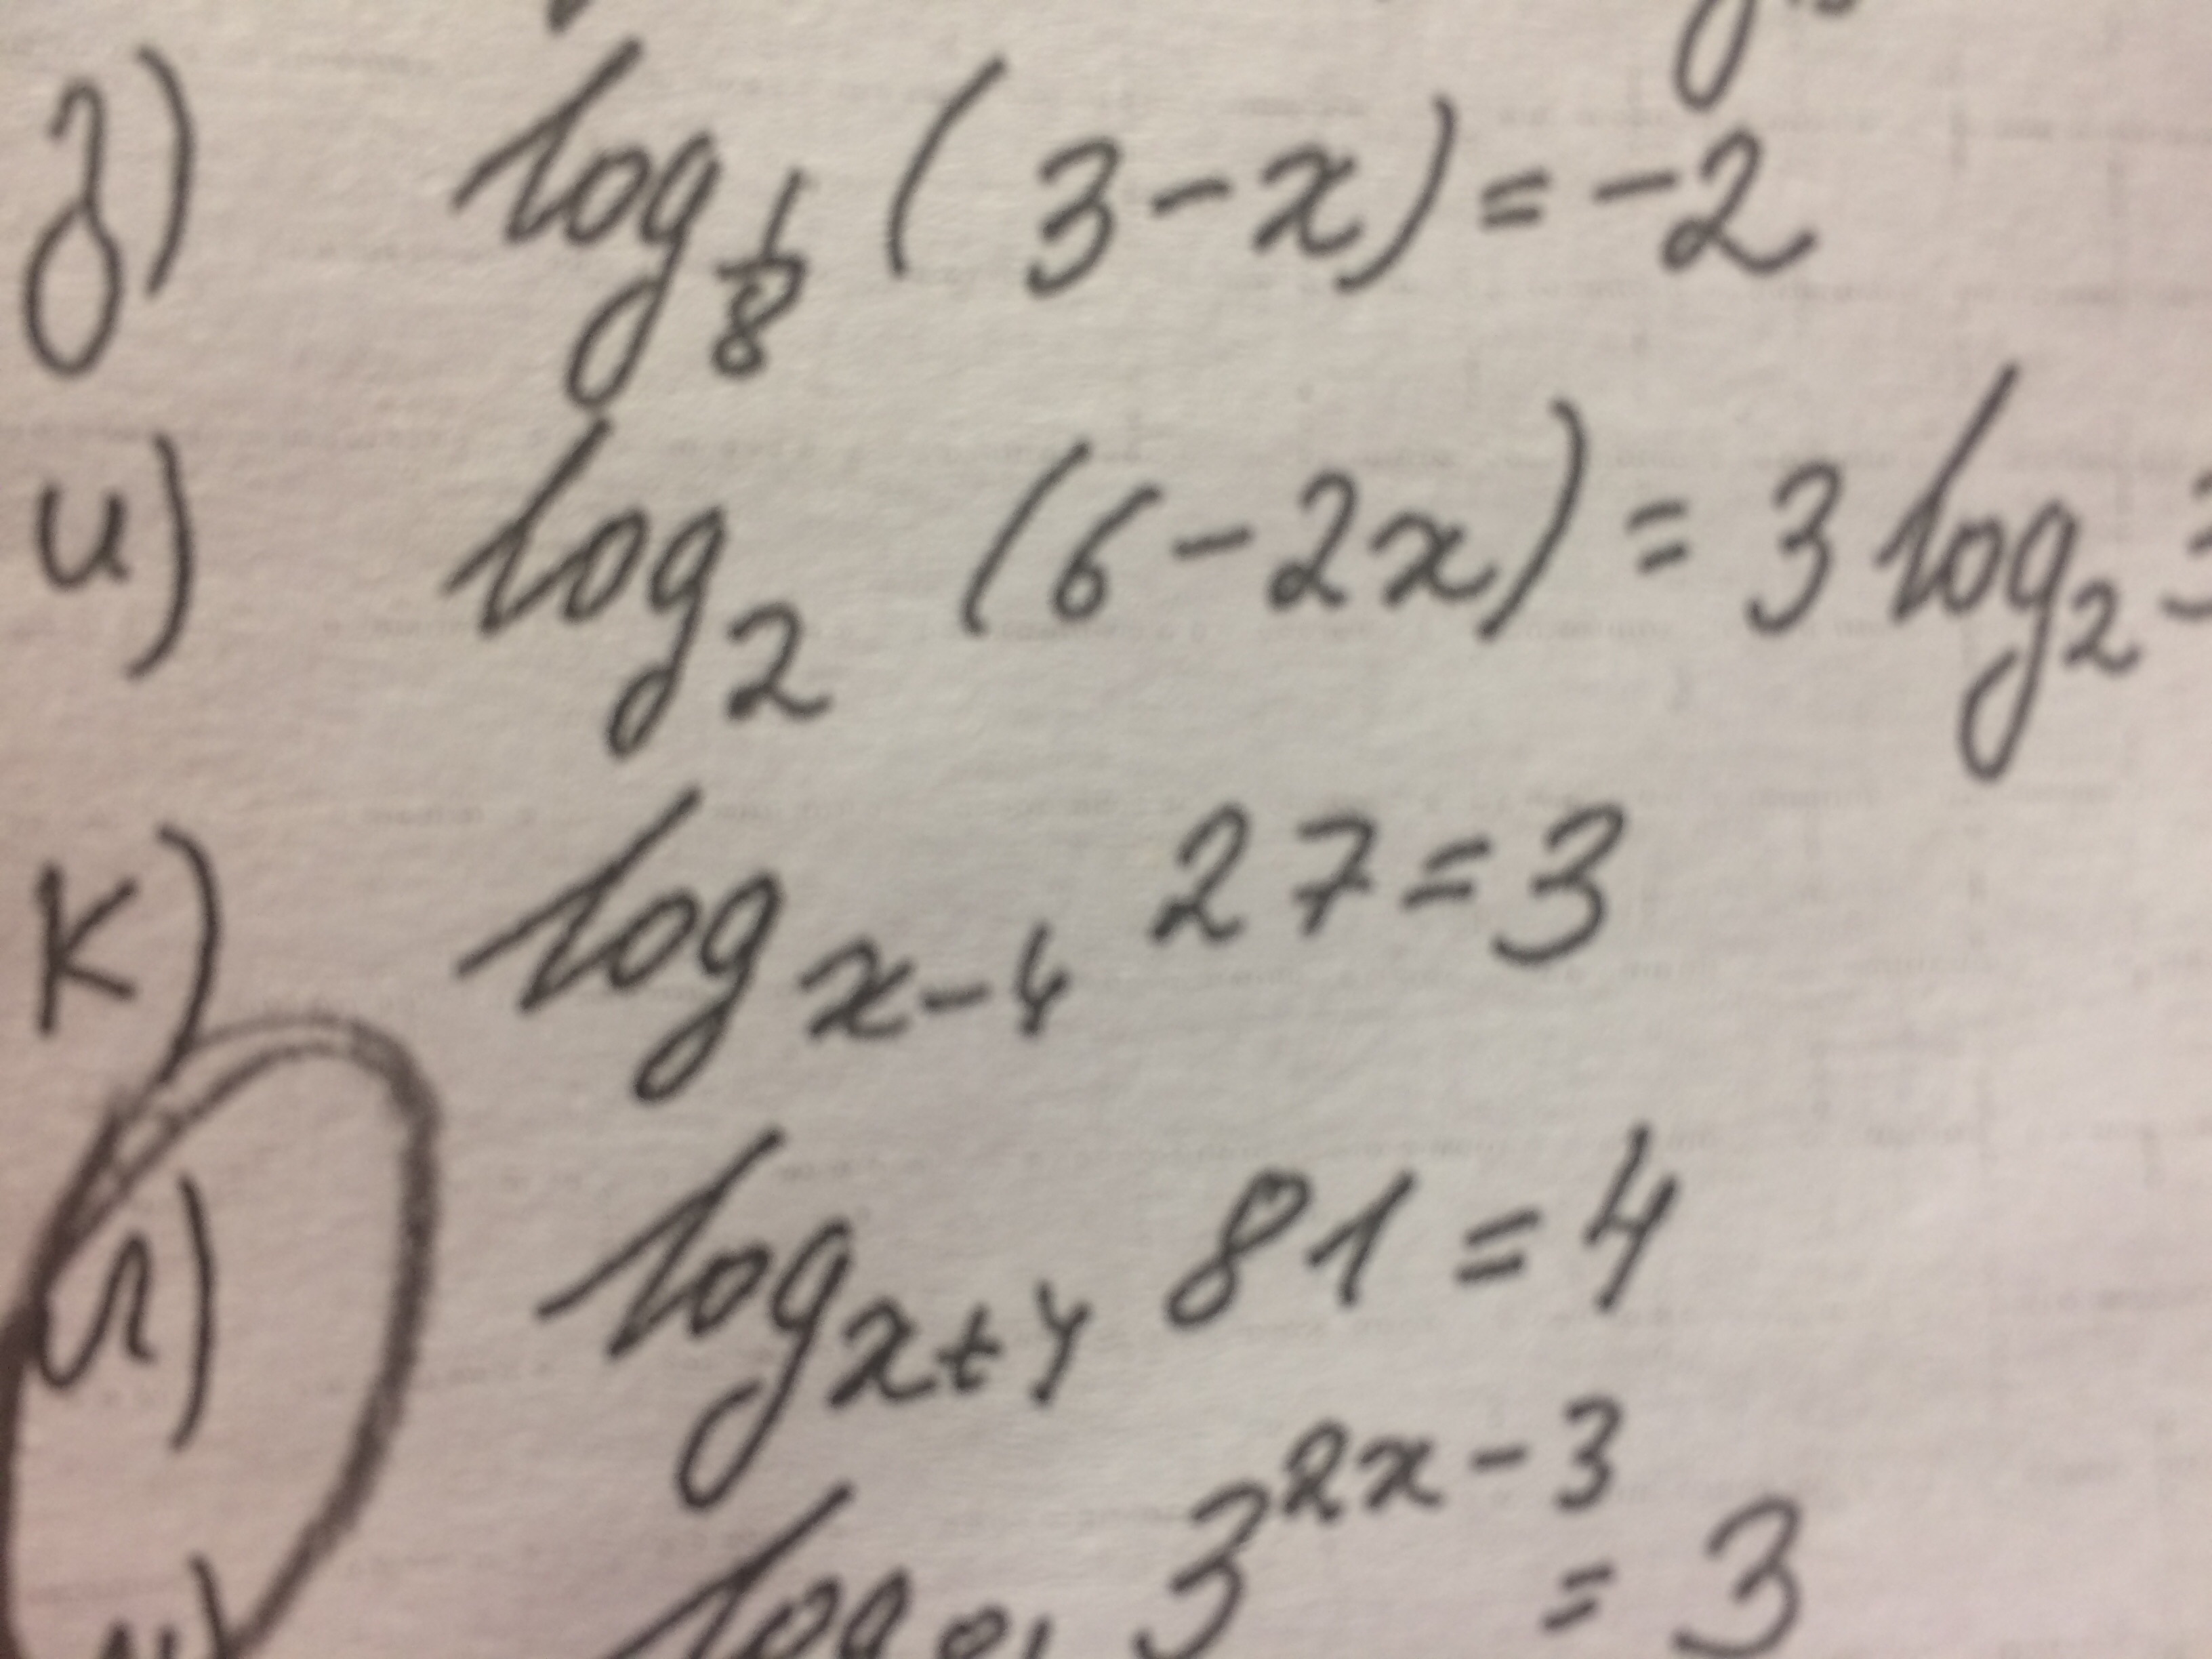 з) log 1/8 (3-x) = -2
и) log₂ (6-2x) = 3 log₂ 3
к) logₓ₋₄ 27 = 3
л) logₓ₊₄ 81 = 4
log 3^(2x-3) = 3